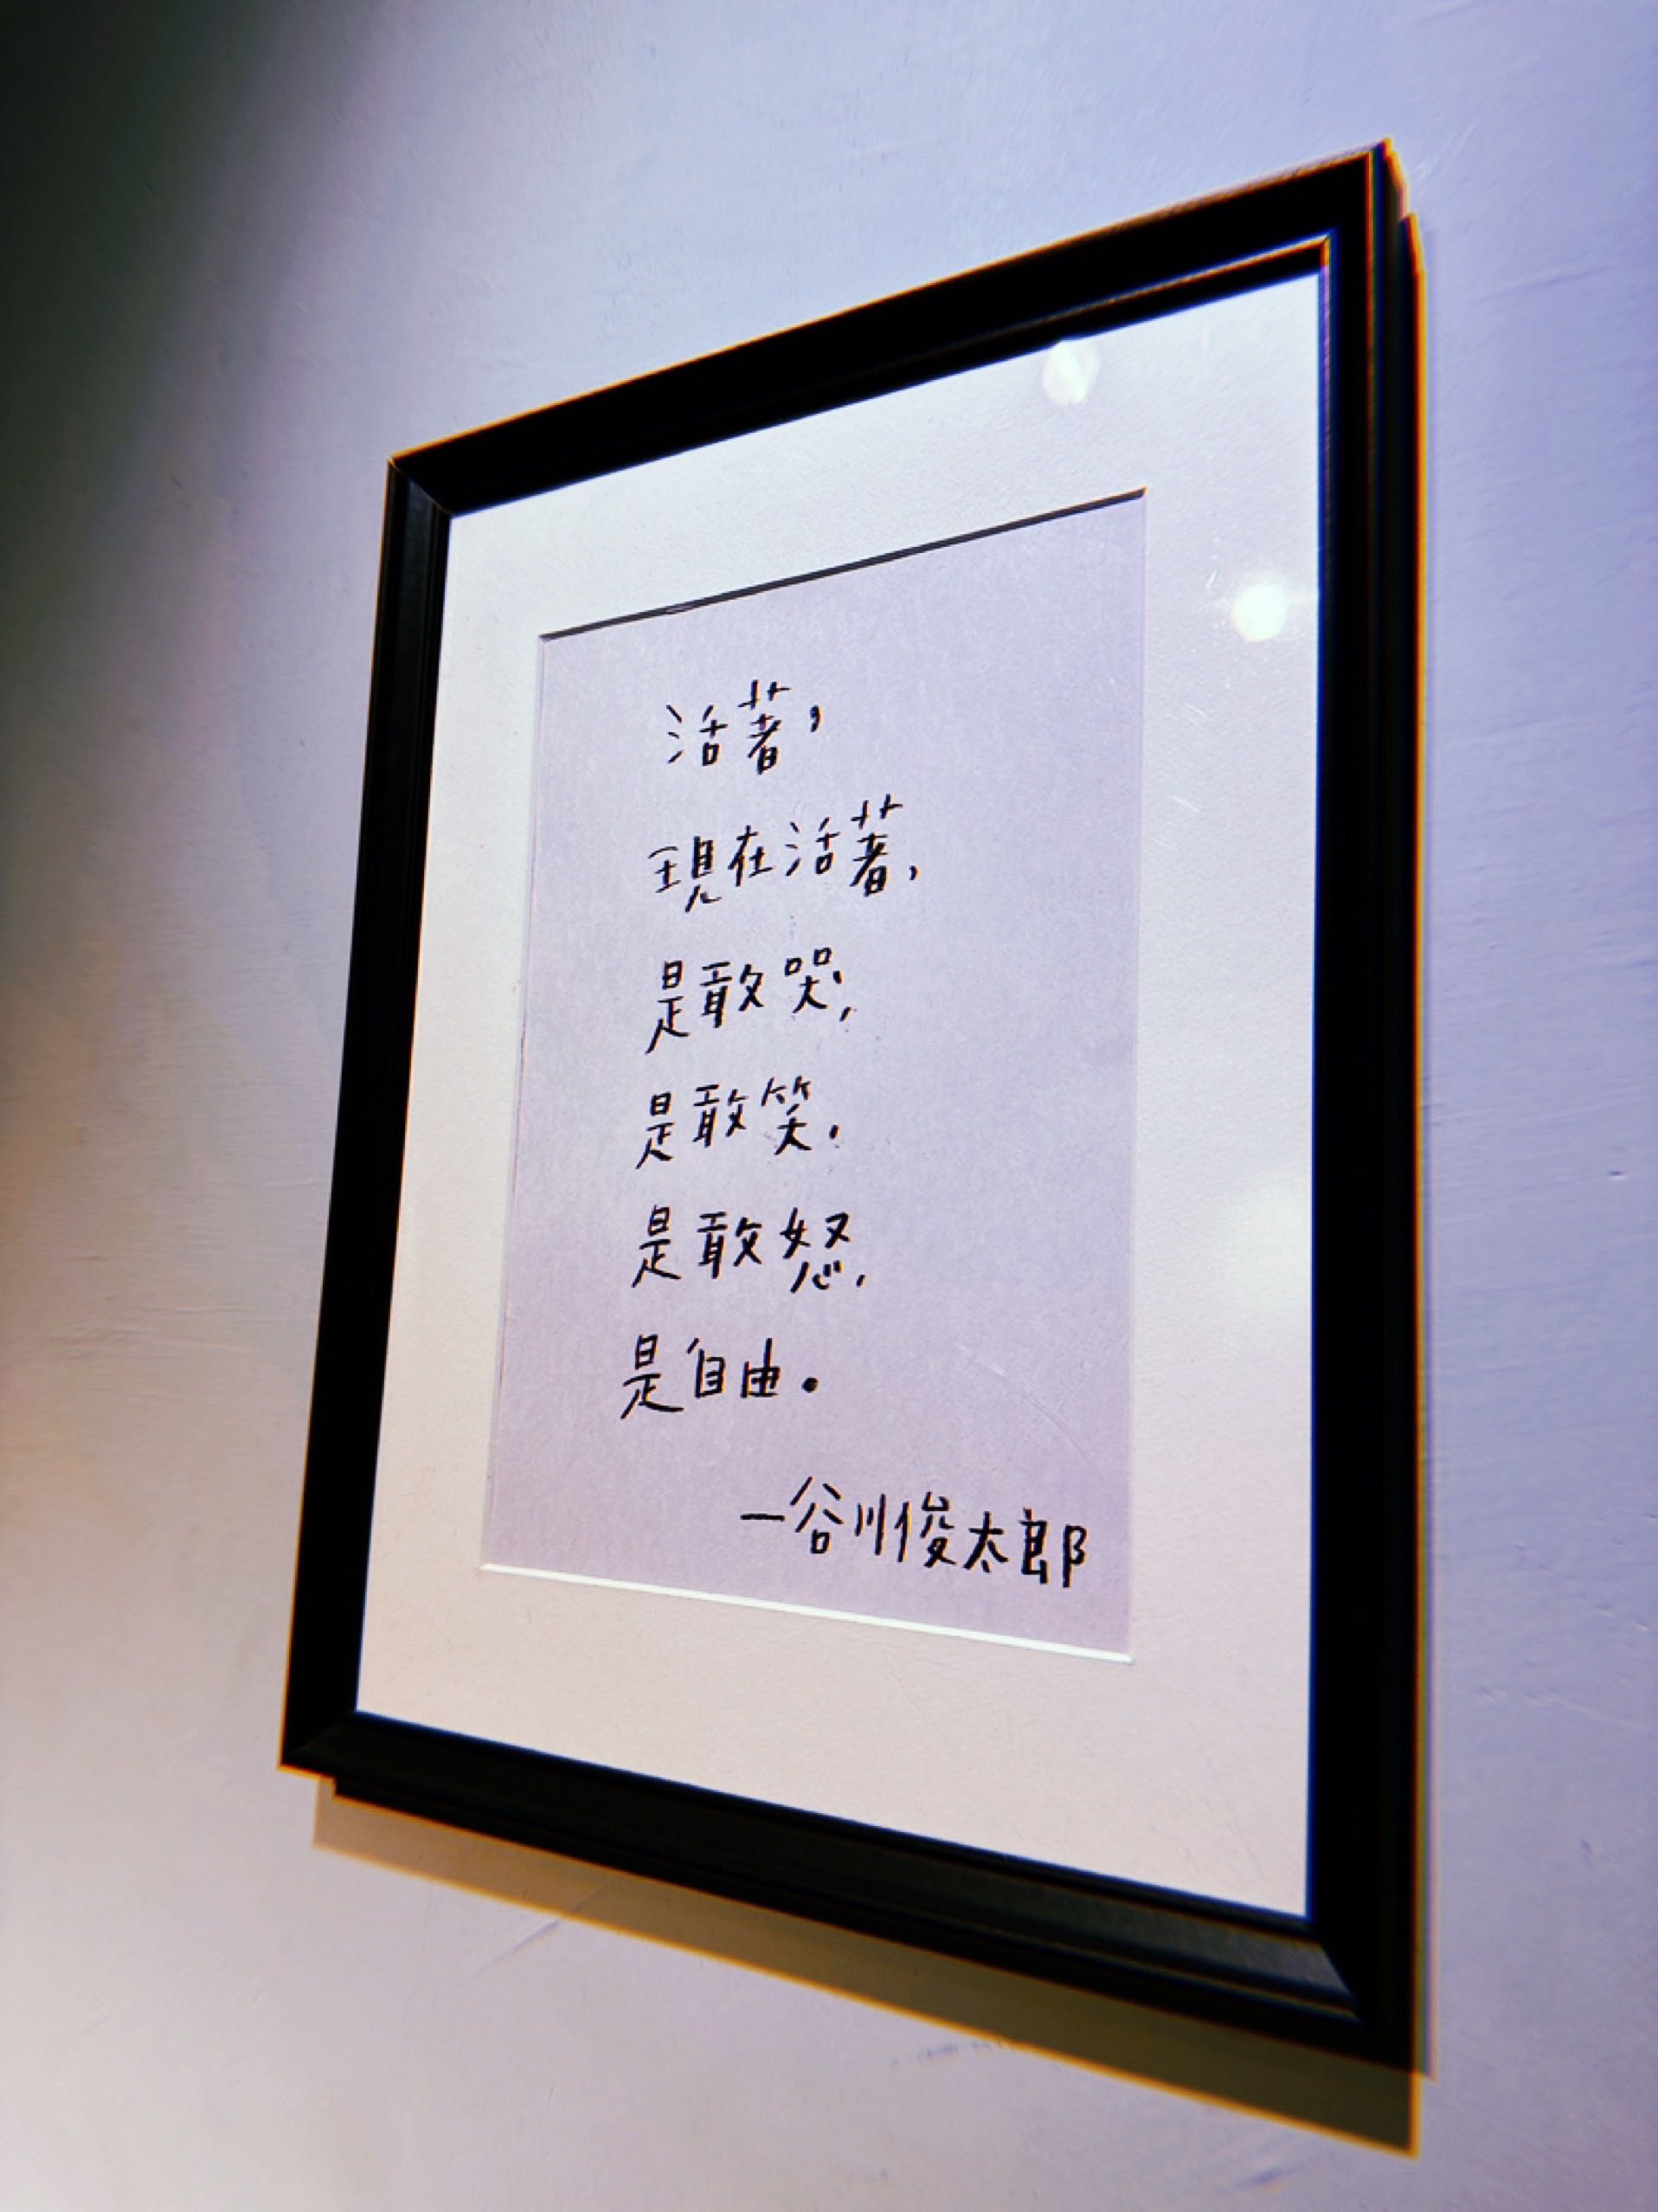 活著，
現在活著，
是敢哭，
是敢笑，
是敢怒，
是自由。
—谷川俊太郎